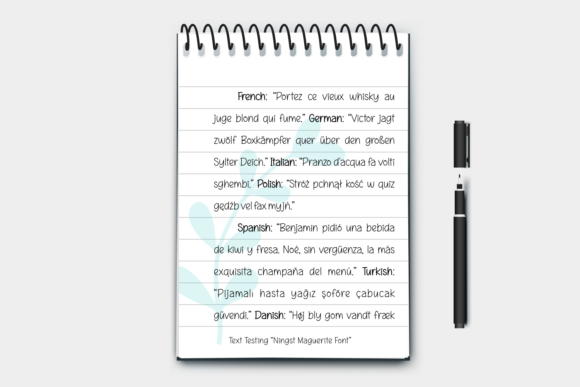 French: "Portez ce vieux whisky au
juge blond qui fume." German: "Victor jagt
zwölf Boxkämpfer quer über den großen
Sylter Deich." Italian: "Pranzo d'acqua fa volti
sghembi." Polish: "Stróż pchnął kość w quiz
gędźb vel fax myjń."
Spanish: "Benjamín pidió una bebida
de kiwi y fresa. Noé, sin vergüenza, la más
exquisita champaña del menú." Turkish:
"Pijamalı hasta yağız şoföre çabucak
güvendi." Danish: "Høj bly gom vandt fræk
Text Testing "Ningst Maguerite Font"